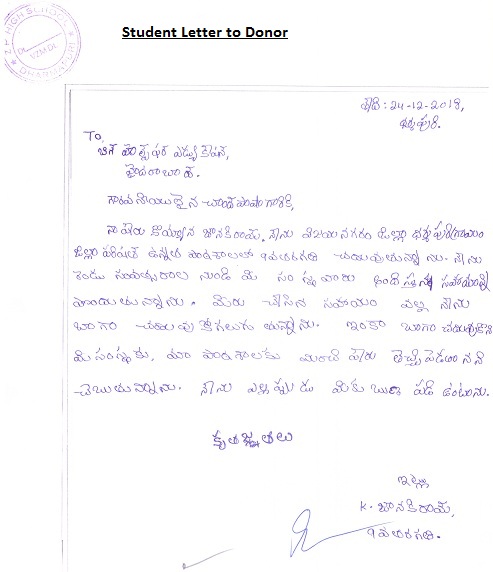 Student Letter to Donor
Z P HIGH SCHOOL
DHARMAPURI
VZM Dt.
తేది: 24-12-2018,
ధర్మపురి.
To,
బిగ్ హెల్ప్ ఫర్ ఎడ్యుకేషన్,
హైదరాబాద్.
గౌరవనీయులైన చాంద్ పాషా గారికి,
నా పేరు జానకిరామ్. నేను విజయనగరం జిల్లా ధర్మపురి గ్రామం
జిల్లా పరిషత్ ఉన్నత పాఠశాలలో 9వతరగతి చదువుతున్నాను. నేను
రెండు సంవత్సరాల నుండి మీ సంస్థ వారు సహాయాన్ని
పొందుతున్నాను. మీరు చేసిన సహాయం వల్ల నేను
బాగా చదువుకోగలుగుతున్నాను. ఇంకా బాగా చదువుకొని
మీ సంస్థకు, మా పాఠశాలకు మంచి పేరు తెచ్చిపెడతానని
చెబుతున్నాను. నేను ఎల్లప్పుడు మీకు ఋణ పడి ఉంటాను.
కృతజ్ఞతలు
ఇట్లు
K. జానకిరామ్,
9వతరగతి.